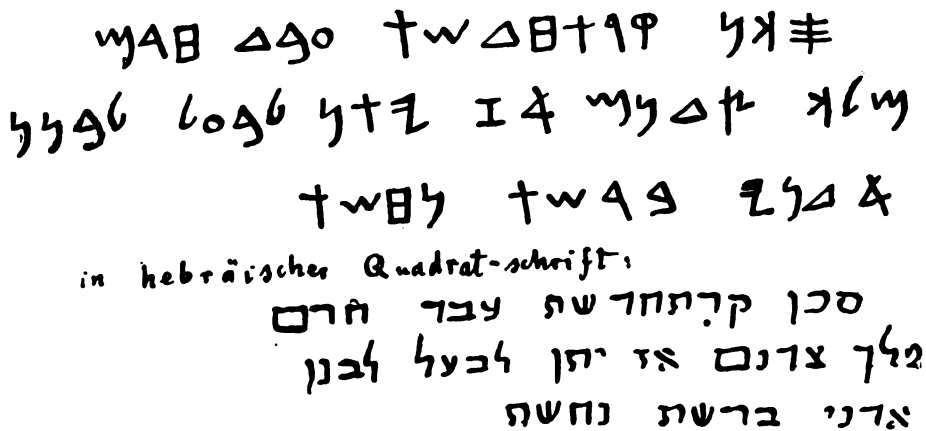 𐤎𐤊𐤍 𐤒𐤓𐤕𐤇𐤃𐤔𐤕 𐤏𐤁𐤃 𐤇𐤓𐤌
𐤌𐤋𐤊 𐤑𐤃𐤍𐤌 𐤀𐤆 𐤉𐤕𐤍 𐤋𐤁𐤏𐤋 𐤋𐤁𐤍𐤍
𐤀𐤃𐤍𐤉 𐤁𐤓𐤔𐤕 𐤍𐤇𐤔𐤕
in hebräischer Quadrat-schrift:
סכן קרתחדשת עבד חרם
מלך צדנם אז יתן לבעל לבנן
אדני ברשת נחשת